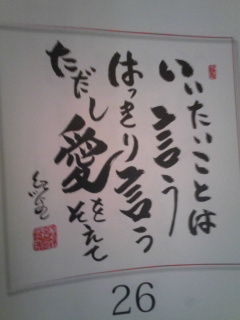 いいたいことは
言う
はっきり言う
ただし愛を
そえて
26